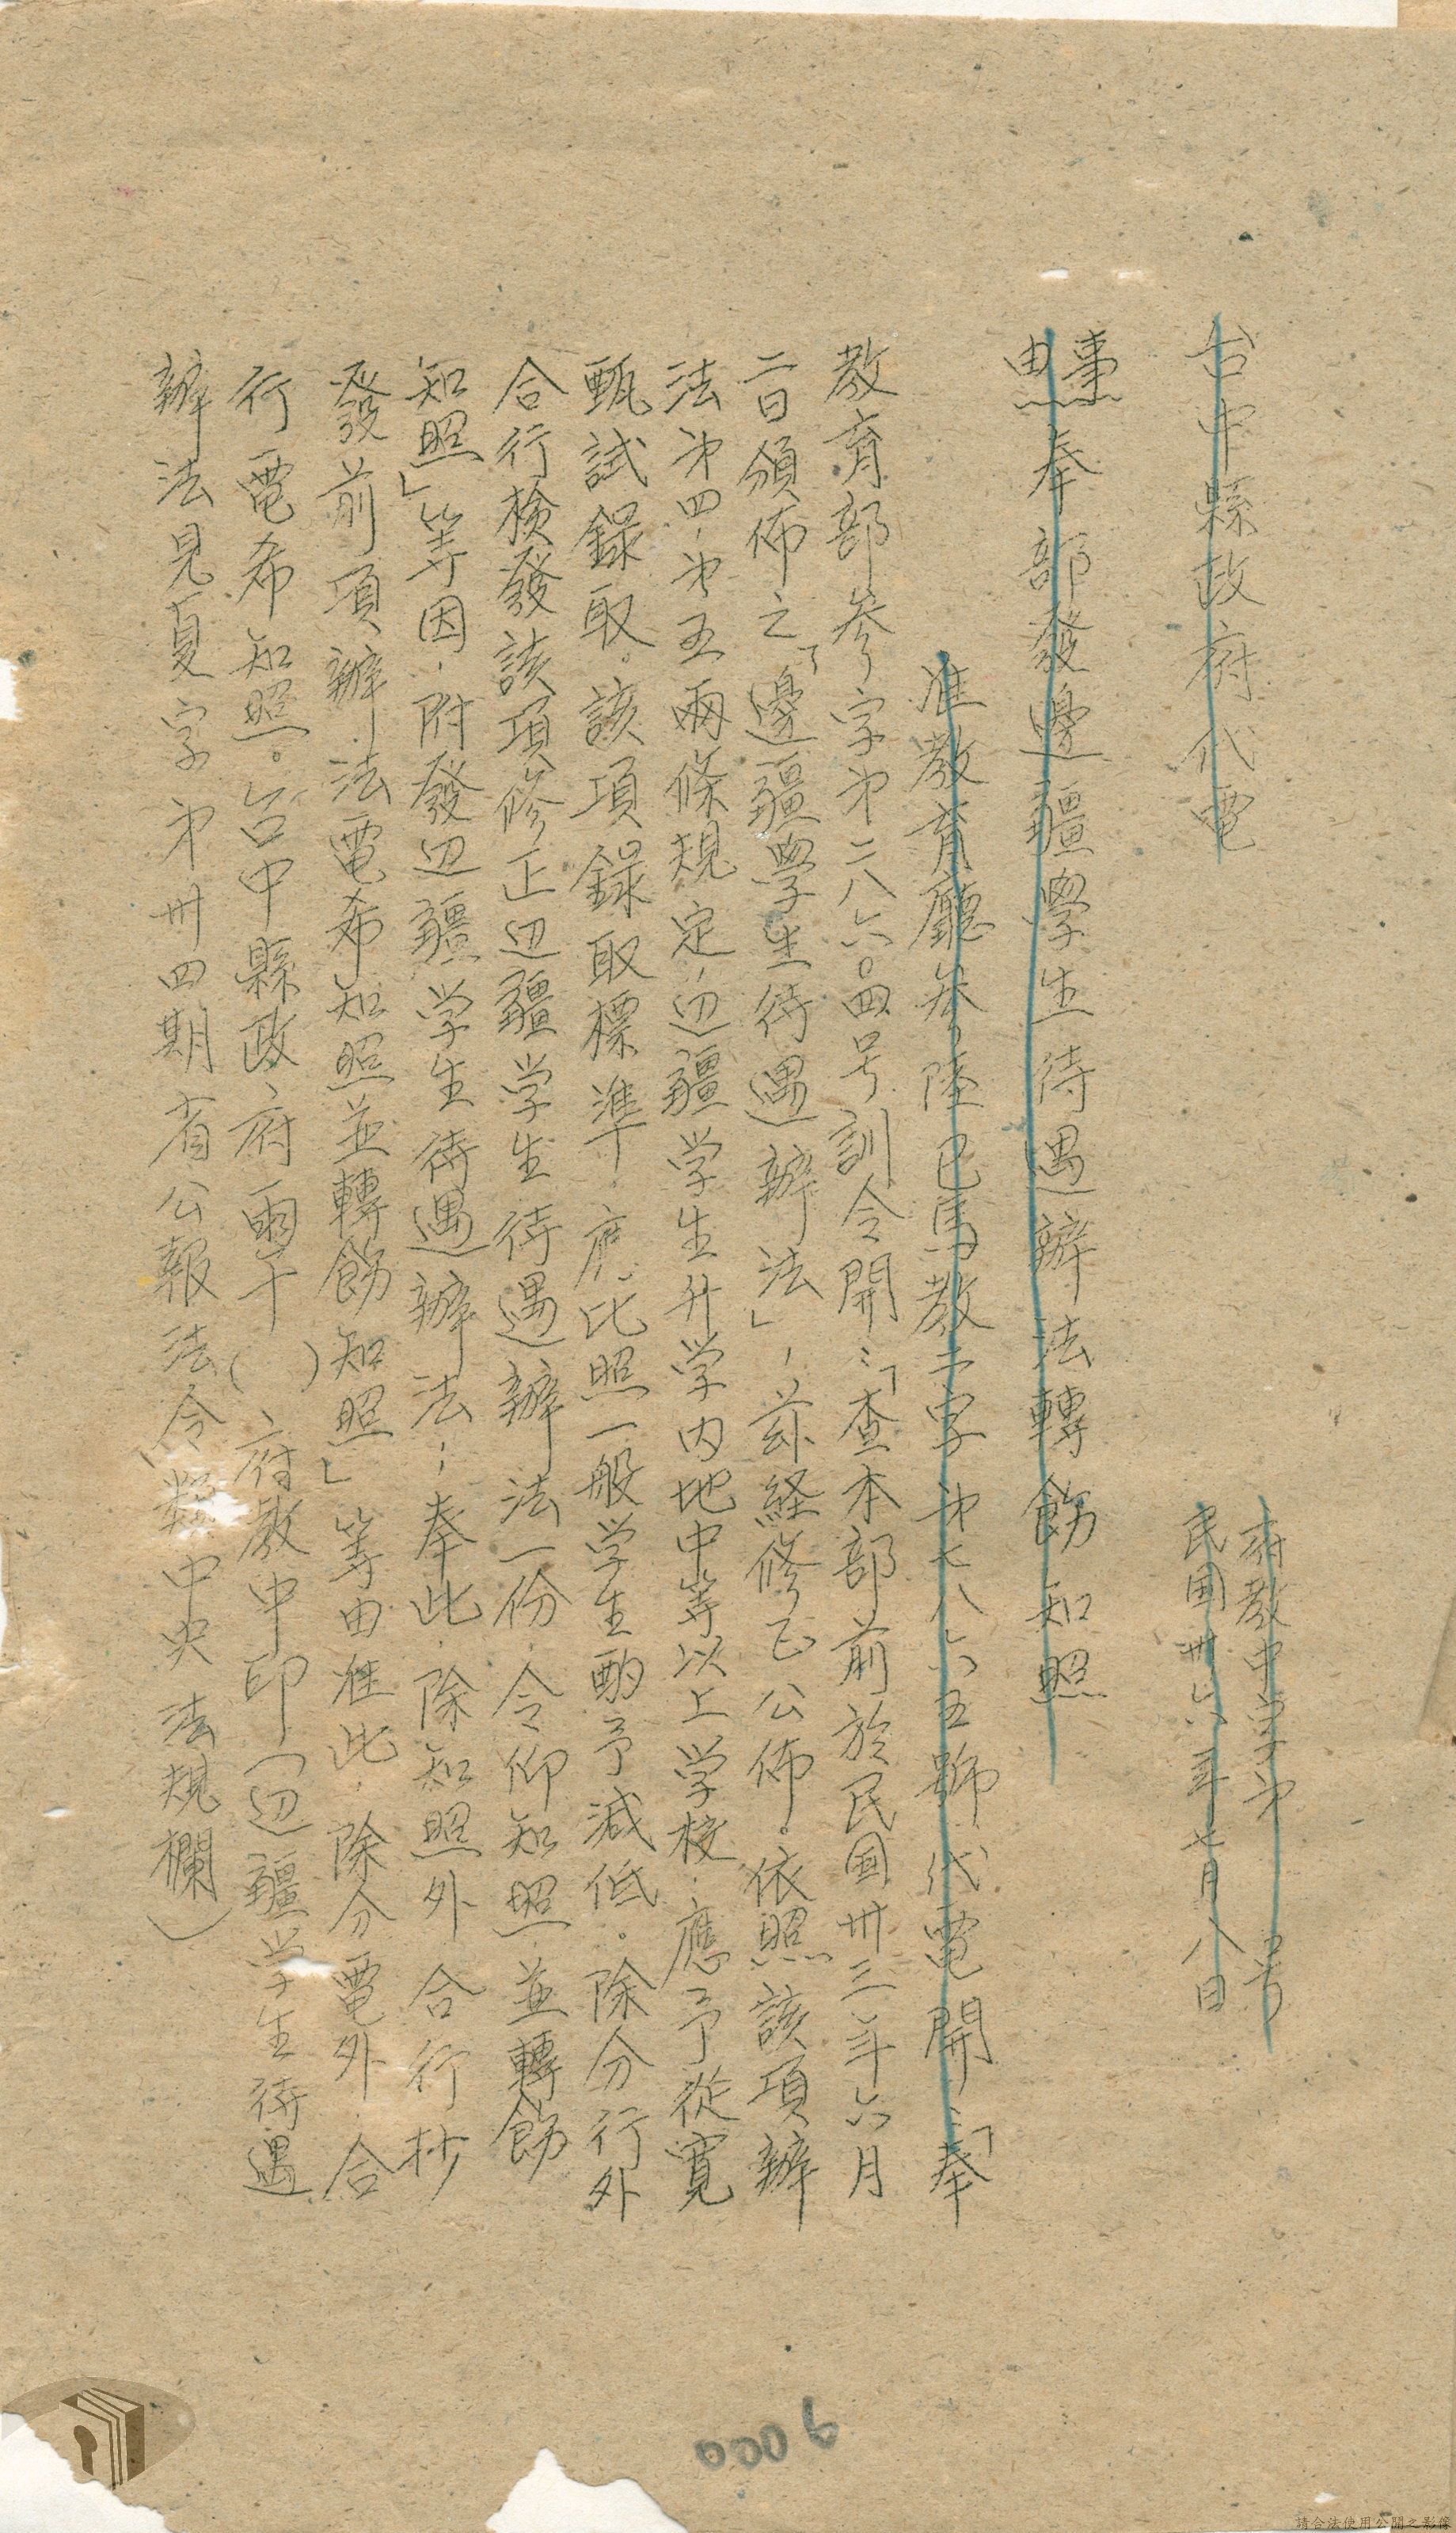 台中縣政府代電
府教中字第　　　号
民国卅六年七月八日
事由：奉部發邊疆學生待遇辦法轉飭知照
准教育廳叁陸巳馬教二字第七八六五號代電開：「奉
教育部参字第二八六〇四号訓令開：「查本部前於民国卅三年六月
二日頒佈之「邊疆學生待遇辦法」，茲経修正公佈。依照該項辦
法第四，第五兩條規定，边疆学生升学内地中等以上学校，應予從寬
甄試錄取。該項錄取標準，應比照一般学生酌予減低。除分行外
合行檢發該項修正边疆学生待遇辦法一份，令仰知照並轉飭
知照」等因，附發边疆学生待遇辦法；奉此，除知照外合行抄
發前項辦法電希知照並轉飭知照」等由准此，除分電外，合
行電希知照。台中縣政府　午（　）府教中印（边疆学生待遇
辦法見夏字第卅四期省公報法令類中央法規欄）
0006
請合法使用公開之影像